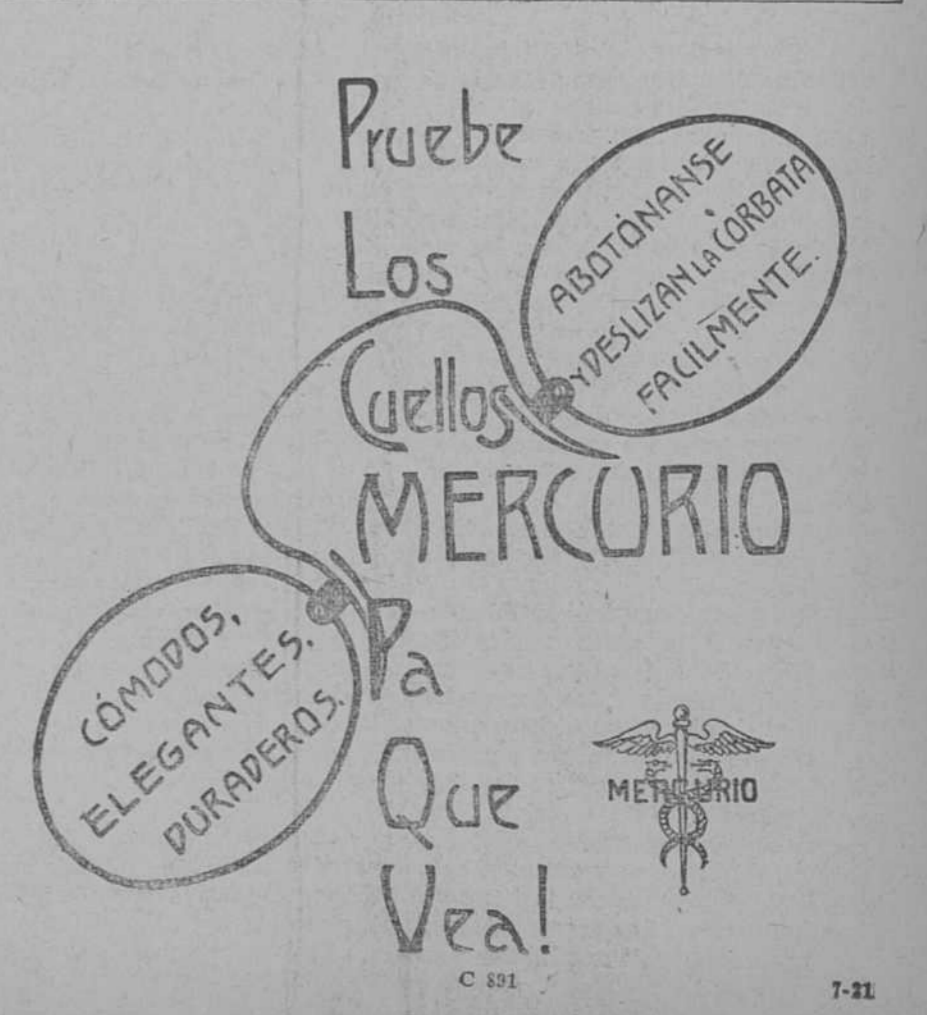 Pruebe
Los
Cuellos
MERCURIO
Pa
Que
Vea!
ABOTÓNANSE
Y DESLIZAN LA CORBATA
FACILMENTE.
CÓMODOS,
ELEGANTES.
DURADEROS.
MERCURIO
C 891
7-21